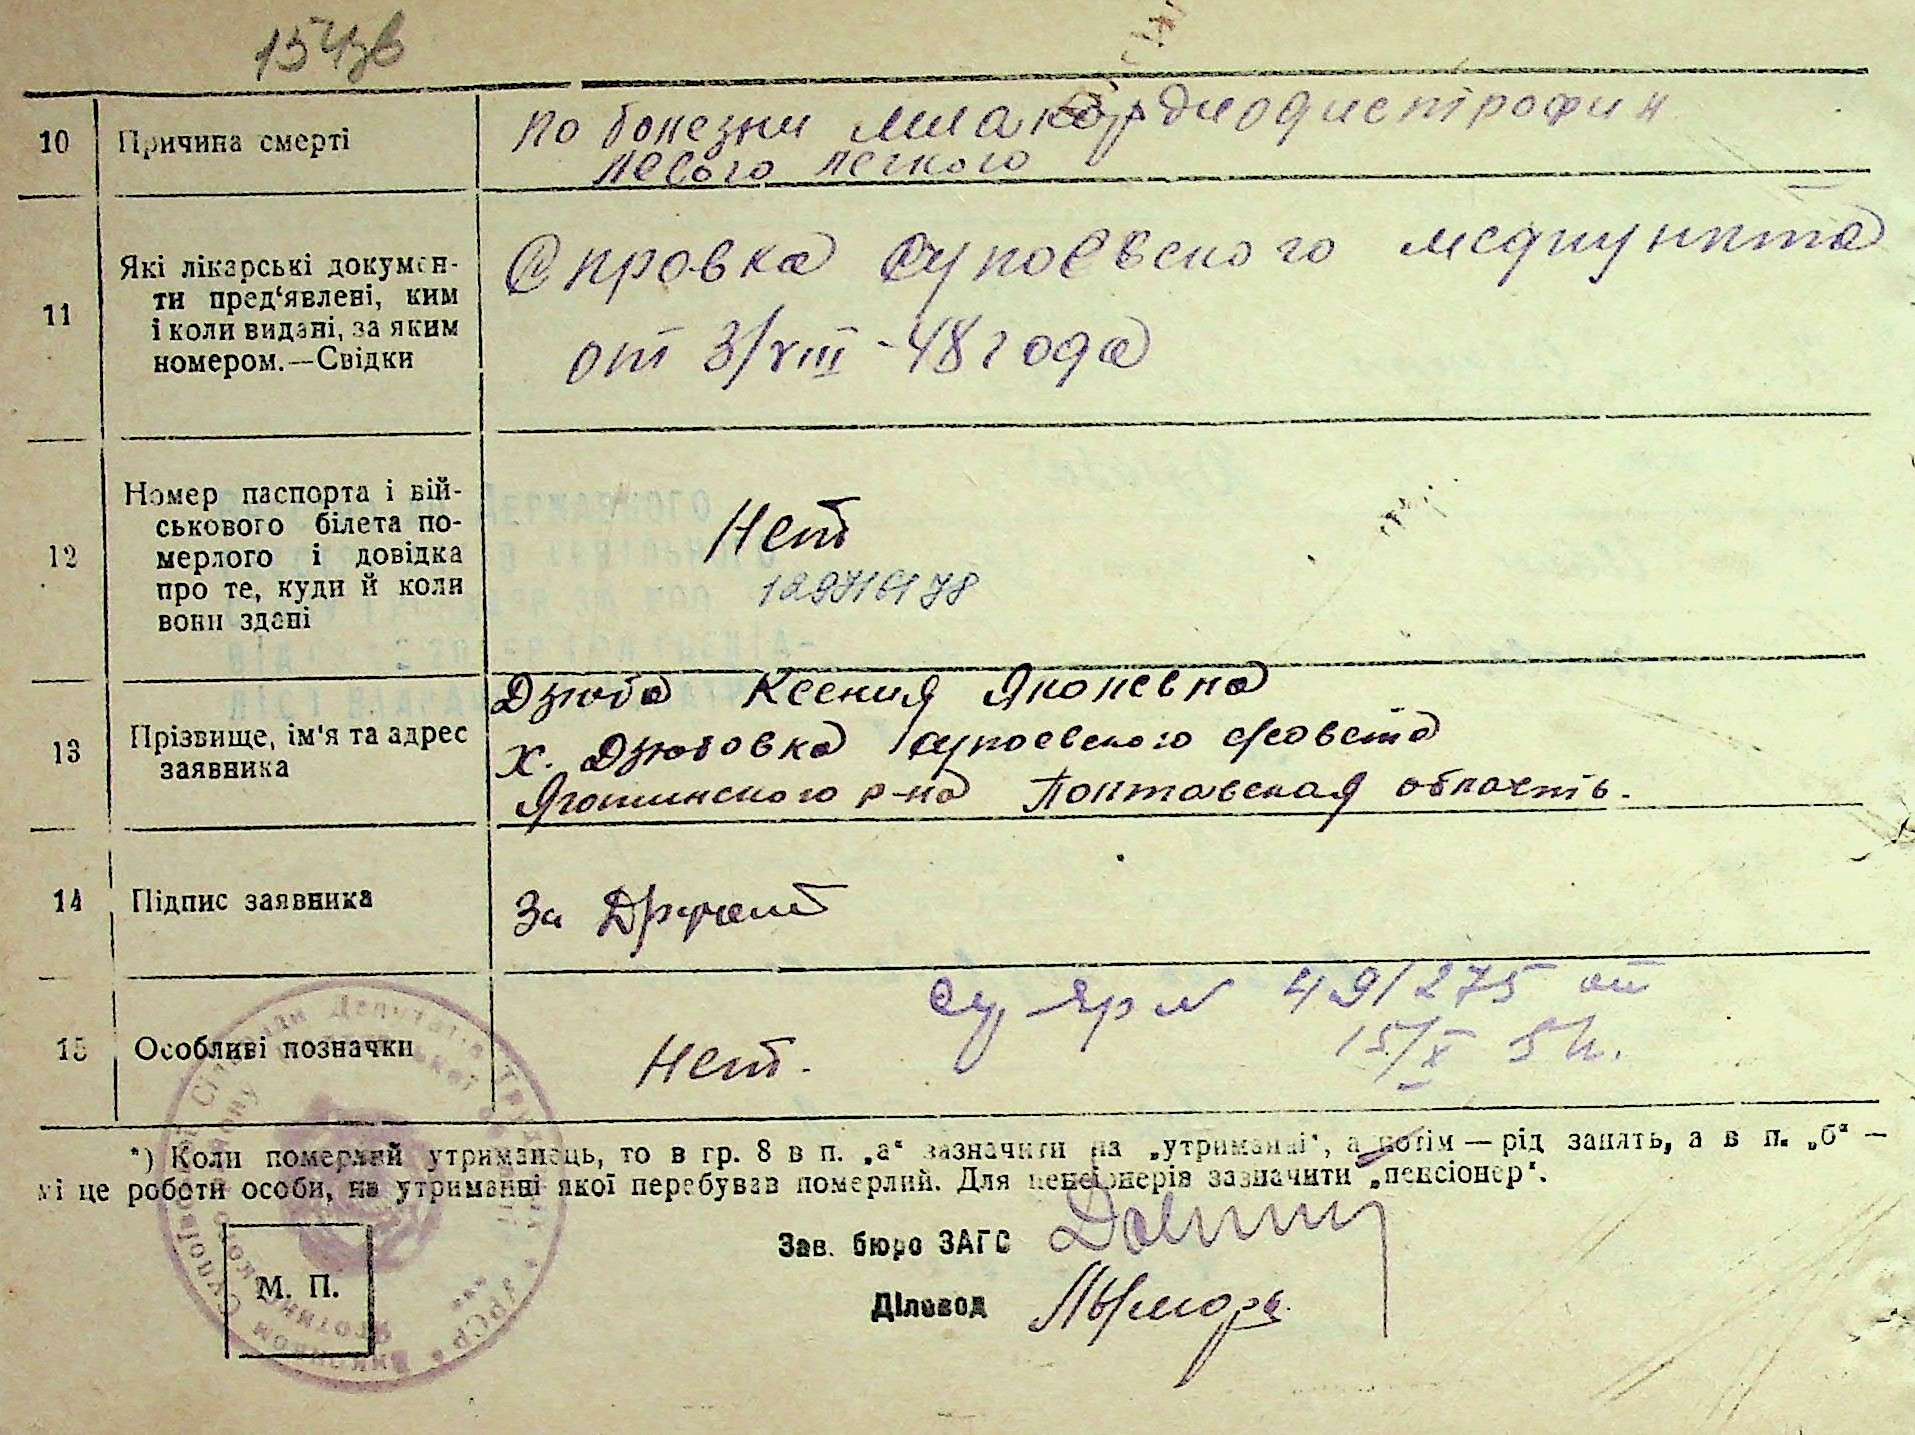 154зв
10 Причина смерті по болезни миакордиодистрофии
левого легкого
11 Які лікарські докумен-
ти пред'явлені, ким
і коли видані, за яким
номером.—Свідки
Справка Супоевского медпункта
от 3/VIII-48 года
12 Номер паспорта і вій-
ськового білета по-
мерлого і довідка
про те, куди й коли
вони здані
Нет
13 Прізвище, ім'я та адрес
заявника
Дзюба Ксения Яколевна
х. Дзюбовка Супоевского с/совета
Яготинского р-на Полтавская область.
14 Підпис заявника За
15 Особливі позначки Нет.
49/275 от
15/X
*) Коли померлий утриманець, то в гр. 8 в п. „а“ зазначити на „утриманні“, а потім — рід занять, а в п. „б“ —
мі це роботи особи, на утриманні якої перебував померлий. Для пенсіонерів зазначити „пенсіонер“.
Зав. бюро ЗАГС
Діловод
М. П.